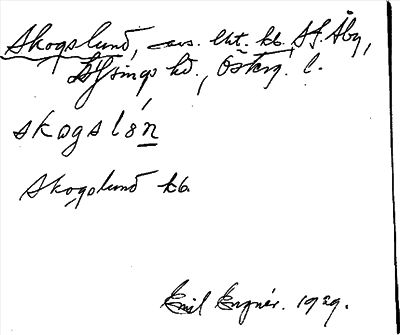 Skogslund, avs. ekt. kb. St. Åby,
Lysings hd., Österg. l.
skogslón
Skogslund kb
Emil Engnér. 1929.